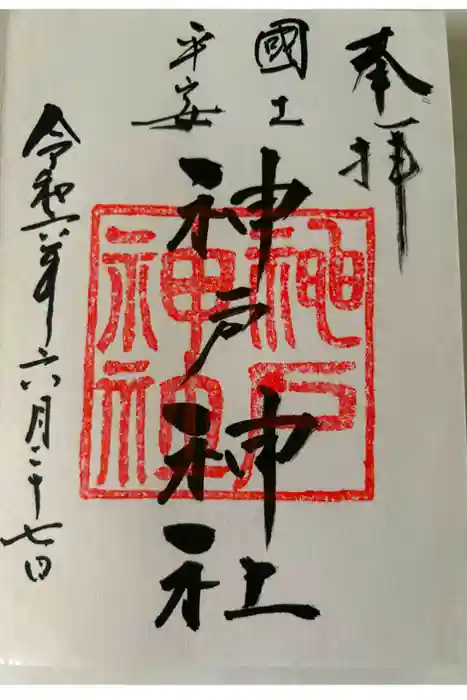 奉拝
國土
平安
神戸神社
令和六年六月二十七日
神戸
神社